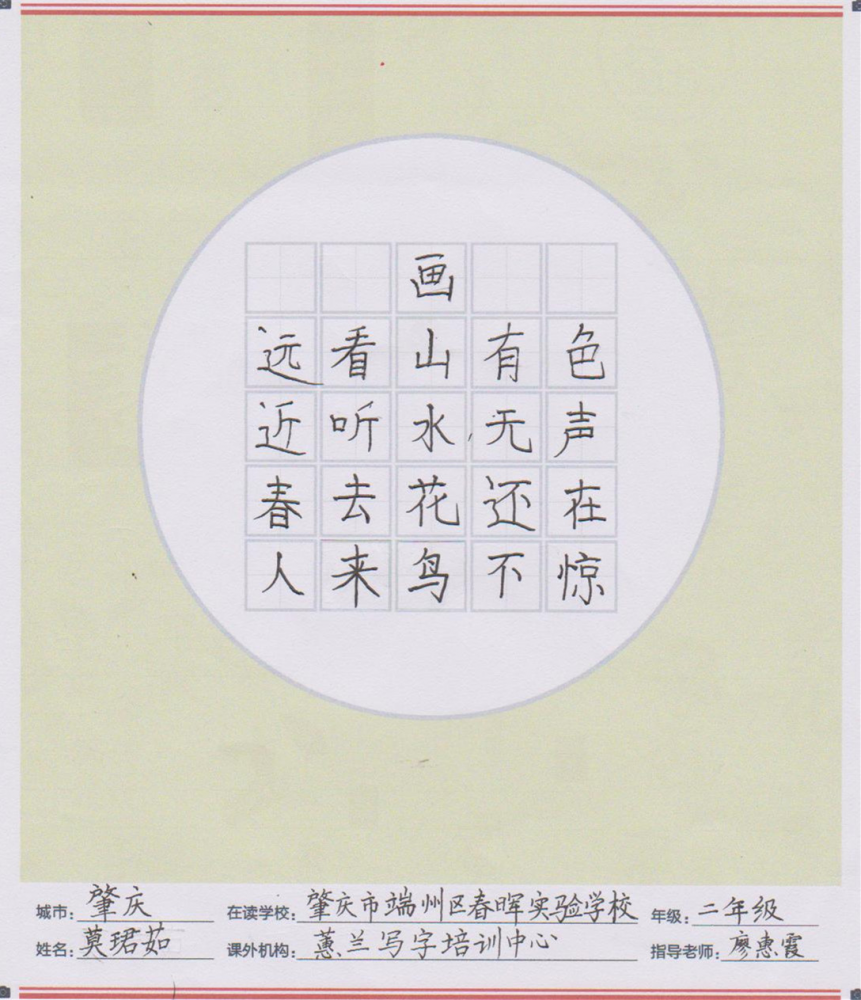 画
远看山有色
近听水无声
春去花还在
人来鸟不惊
城市：肇庆 在读学校：肇庆市端州区春晖实验学校 年级：二年级
姓名：莫珺茹 课外机构：蕙兰写字培训中心 指导老师：廖惠霞